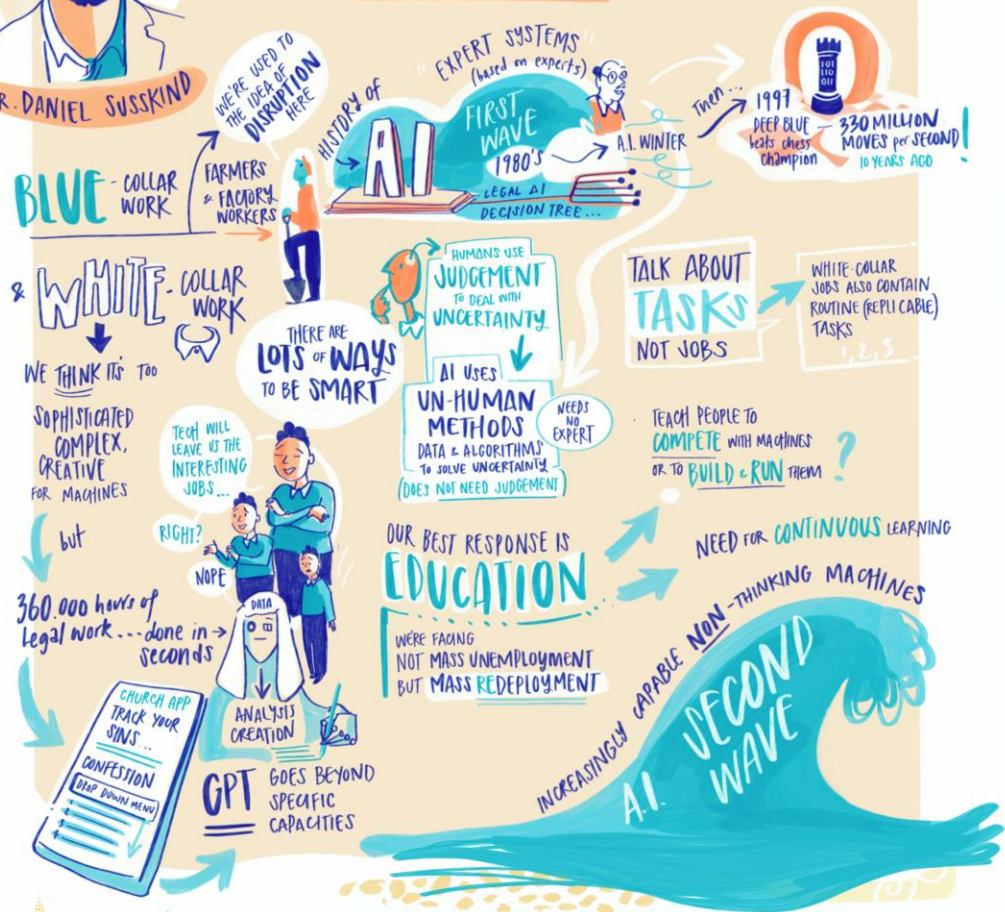 R. DANIEL SUSSKIND
WE'RE USED TO
THE IDEA OF
DISRUPTION
HERE
BLUE-COLLAR
WORK
FARMERS
& FACTORY
WORKERS
& WHITE-COLLAR
WORK
WE THINK IT'S TOO
SOPHISTICATED
COMPLEX,
CREATIVE
FOR MACHINES
but
360.000 hours of
legal work... done in
seconds
CHURCH APP
TRACK YOUR
SINS...
CONFESSION
DROP DOWN MENU
HISTORY OF
AI
"EXPERT SYSTEMS"
(based on experts)
FIRST
WAVE
1980'S
A.I. WINTER
LEGAL AI
DECISION TREE...
Then...
1997
DEEP BLUE
beats chess
champion
101
110
011
330 MILLION
MOVES per SECOND!
10 YEARS AGO
THERE ARE
LOTS OF WAYS
TO BE SMART
HUMANS USE
JUDGEMENT
TO DEAL WITH
UNCERTAINTY
AI USES
UN-HUMAN
METHODS
DATA & ALGORITHMS
TO SOLVE UNCERTAINTY
(DOES NOT NEED JUDGEMENT)
NEEDS
NO
EXPERT
TALK ABOUT
TASKS
NOT JOBS
WHITE-COLLAR
JOBS ALSO CONTAIN
ROUTINE (REPLICABLE)
TASKS
1, 2, 3
TECH WILL
LEAVE US THE
INTERESTING
JOBS...
RIGHT?
NOPE
DATA
ANALYSIS
CREATION
GPT GOES BEYOND
SPECIFIC
CAPACITIES
OUR BEST RESPONSE IS
EDUCATION
WE'RE FACING
NOT MASS UNEMPLOYMENT
BUT MASS REDEPLOYMENT
TEACH PEOPLE TO
COMPETE WITH MACHINES
OR TO BUILD & RUN THEM ?
NEED FOR CONTINUOUS LEARNING
INCREASINGLY CAPABLE NON-THINKING MACHINES
A.I. SECOND
WAVE